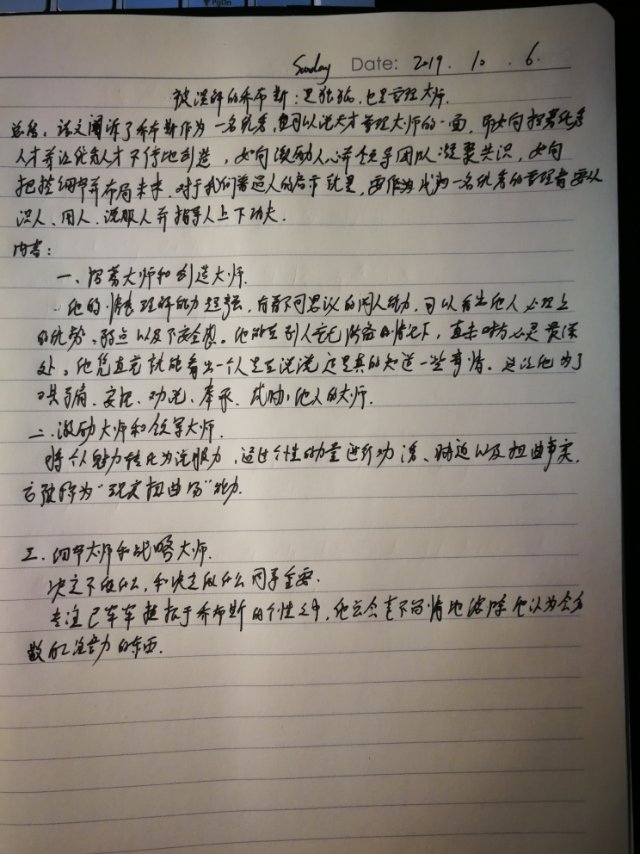 PgDn
Sunday Date: 2019. 10. 6.
被误解的乔布斯：是独狐，也是管理大师.
总结：该文阐诉了乔布斯作为一名优秀，也可以说天才管理大师的一面，即如何招募优秀
人才并让优秀人才不停地创造，如何激励人心并领导团队凝聚共识，如何
把控细节并布局未来. 对于我们普通人的启示就是，要作为成为一名优秀的管理者要从
识人、用人、说服人并指导人上下功夫.
内容：
一、招募大师和创造大师.
他的情绪理解能力超强，有着不可思议的网人能力，可以看出他人心理上
的优势、弱点以及不安全感。他能在别人毫无防备的情况下，直击内心最深
处。他凭直觉就能看出一个人是在说谎还是真的知道一些事情。这让他为了
哄骗、安抚、劝说、奉承、威胁他人的大师.
二、激励大师和领导大师.
将个人魅力转化为说服力，通过个性的力量进行劝诱、胁迫以及扭曲事实，
它被称为“现实扭曲场”能力.
三、细节大师和战略大师.
决定不做什么，和决定做什么同等重要.
专注已牢牢植根于乔布斯的个性之中，他会毫不留情地滤除他认为会分
散他注意力的东西.